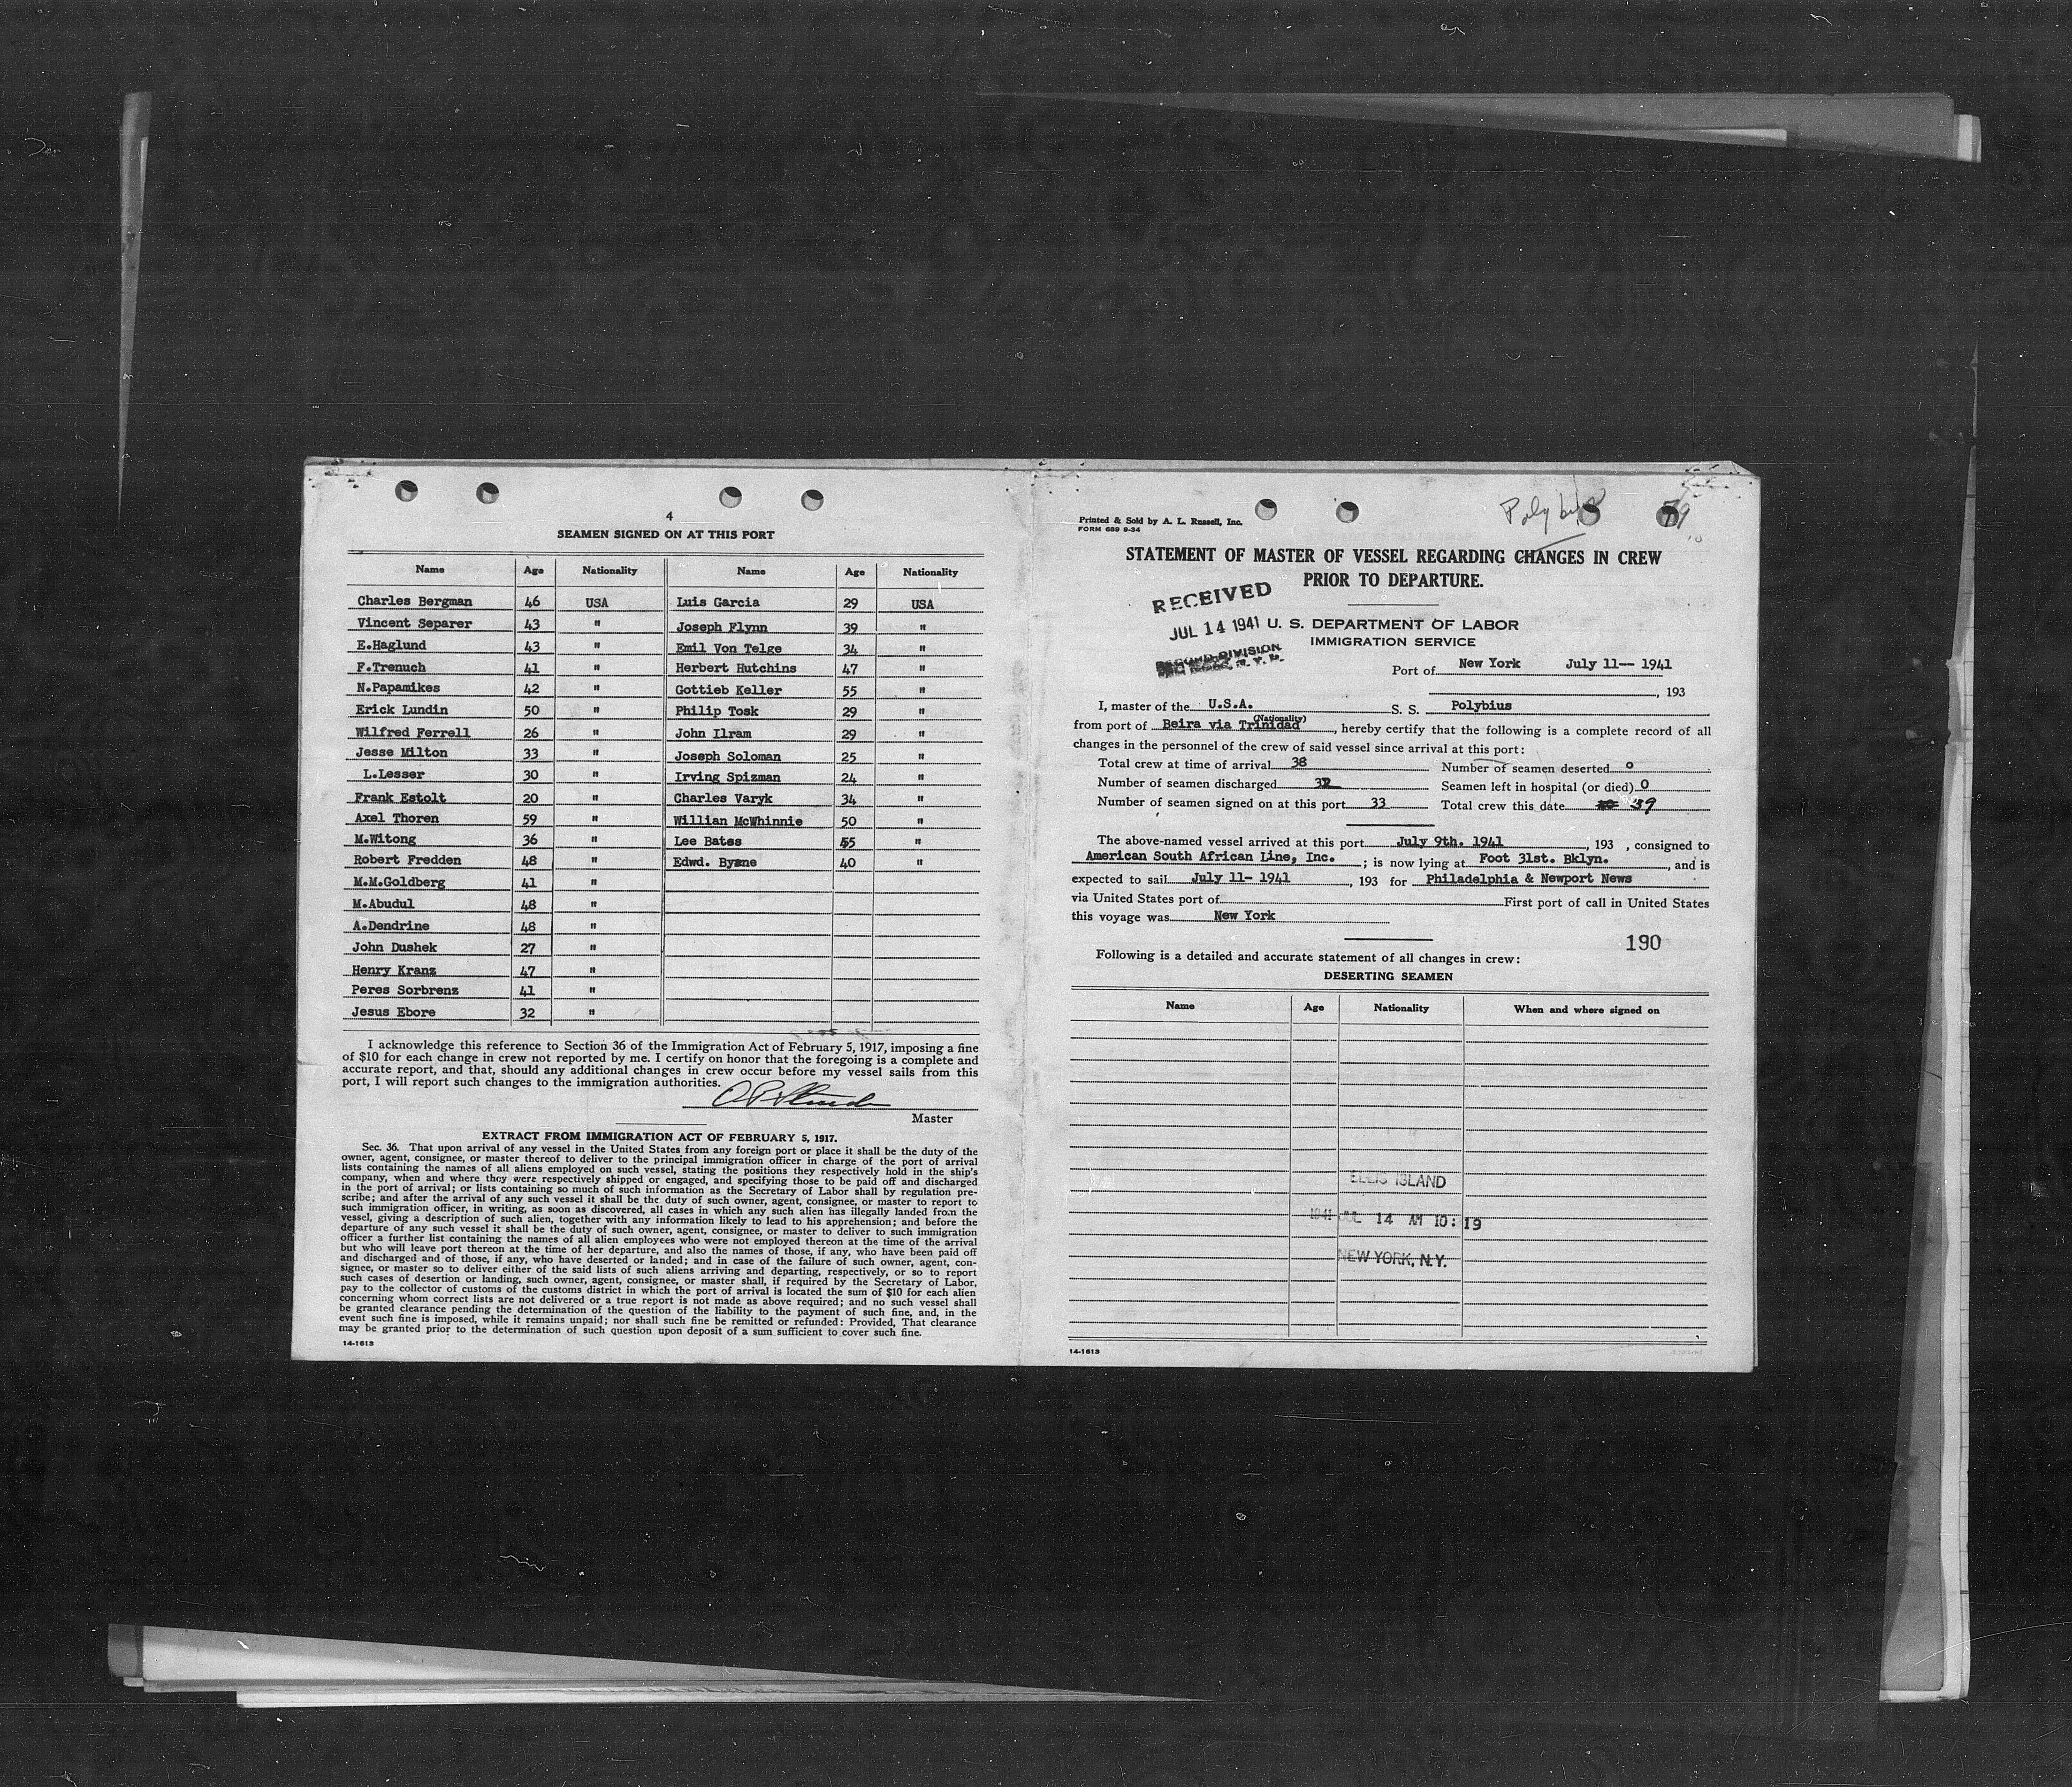 4
SEAMEN SIGNED ON AT THIS PORT
Name Age Nationality Name Age Nationality
Charles Bergman 46 USA Luis Garcia 29 USA
Vincent Separer 43 " Joseph Flynn 39 "
E.Haglund 43 " Emil Von Telge 34 "
F.Trenuch 41 " Herbert Hutchins 47 "
N.Papamikes 42 " Gottieb Keller 55 "
Erick Lundin 50 " Philip Tosk 29 "
Wilfred Ferrell 26 " John Ilram 29 "
Jesse Milton 33 " Joseph Soloman 25 "
L.Lesser 30 " Irving Spizman 24 "
Frank Estolt 20 " Charles Varyk 34 "
Axel Thoren 59 " Willian McWhinnie 50 "
M.Witong 36 " Lee Bates 55 "
Robert Fredden 48 " Edwd. Byrne 40 "
M.M.Goldberg 41 "
M.Abudul 48 "
A.Dendrine 48 "
John Dushek 27 "
Henry Kranz 47 "
Peres Sorbrenz 41 "
Jesus Ebore 32 "
I acknowledge this reference to Section 36 of the Immigration Act of February 5, 1917, imposing a fine
of $10 for each change in crew not reported by me. I certify on honor that the foregoing is a complete and
accurate report, and that, should any additional changes in crew occur before my vessel sails from this
port, I will report such changes to the immigration authorities.
Master
EXTRACT FROM IMMIGRATION ACT OF FEBRUARY 5, 1917.
Sec. 36. That upon arrival of any vessel in the United States from any foreign port or place it shall be the duty of the
owner, agent, consignee, or master thereof to deliver to the principal immigration officer in charge of the port of arrival
lists containing the names of all aliens employed on such vessel, stating the positions they respectively hold in the ship's
company, when and where they were respectively shipped or engaged, and specifying those to be paid off and discharged
in the port of arrival; or lists containing so much of such information as the Secretary of Labor shall by regulation pre-
scribe; and after the arrival of any such vessel it shall be the duty of such owner, agent, consignee, or master to report to
such immigration officer, in writing, as soon as discovered, all cases in which any such alien has illegally landed from the
vessel, giving a description of such alien, together with any information likely to lead to his apprehension; and before the
departure of any such vessel it shall be the duty of such owner, agent, consignee, or master to deliver to such immigration
officer a further list containing the names of all alien employees who were not employed thereon at the time of the arrival
but who will leave port thereon at the time of her departure, and also the names of those, if any, who have been paid off
and discharged and of those, if any, who have deserted or landed; and in case of the failure of such owner, agent, con-
signee, or master so to deliver either of the said lists of such aliens arriving and departing, respectively, or so to report
such cases of desertion or landing, such owner, agent, consignee, or master shall, if required by the Secretary of Labor,
pay to the collector of customs of the customs district in which the port of arrival is located the sum of $10 for each alien
concerning whom correct lists are not delivered or a true report is not made as above required; and no such vessel shall
be granted clearance pending the determination of the question of the liability to the payment of such fine, and, in the
event such fine is imposed, while it remains unpaid; nor shall such fine be remitted or refunded: Provided, That clearance
may be granted prior to the determination of such question upon deposit of a sum sufficient to cover such fine.
14-1613
Polybius
Printed & Sold by A. L. Russell, Inc.
FORM 689 9-34
STATEMENT OF MASTER OF VESSEL REGARDING CHANGES IN CREW
PRIOR TO DEPARTURE.
RECEIVED
JUL 14 1941
RECORD DIVISION
U. S. DEPARTMENT OF LABOR
IMMIGRATION SERVICE
Port of New York July 11-- 1941
, 193
I, master of the U.S.A. S. S. Polybius
(Nationality)
from port of Beira via Trinidad, hereby certify that the following is a complete record of all
changes in the personnel of the crew of said vessel since arrival at this port:
Total crew at time of arrival 38 Number of seamen deserted 0
Number of seamen discharged 32 Seamen left in hospital (or died) 0
Number of seamen signed on at this port 33 Total crew this date 39
The above-named vessel arrived at this port July 9th. 1941, 193 , consigned to
American South African Line, Inc. ; is now lying at Foot 31st. Bklyn. , and is
expected to sail July 11- 1941 , 193 for Philadelphia & Newport News
via United States port of First port of call in United States
this voyage was New York
190
Following is a detailed and accurate statement of all changes in crew:
DESERTING SEAMEN
Name Age Nationality When and where signed on
ELLIS ISLAND
1941 JUL 14 AM 10:19
NEW YORK, N.Y.
14-1613